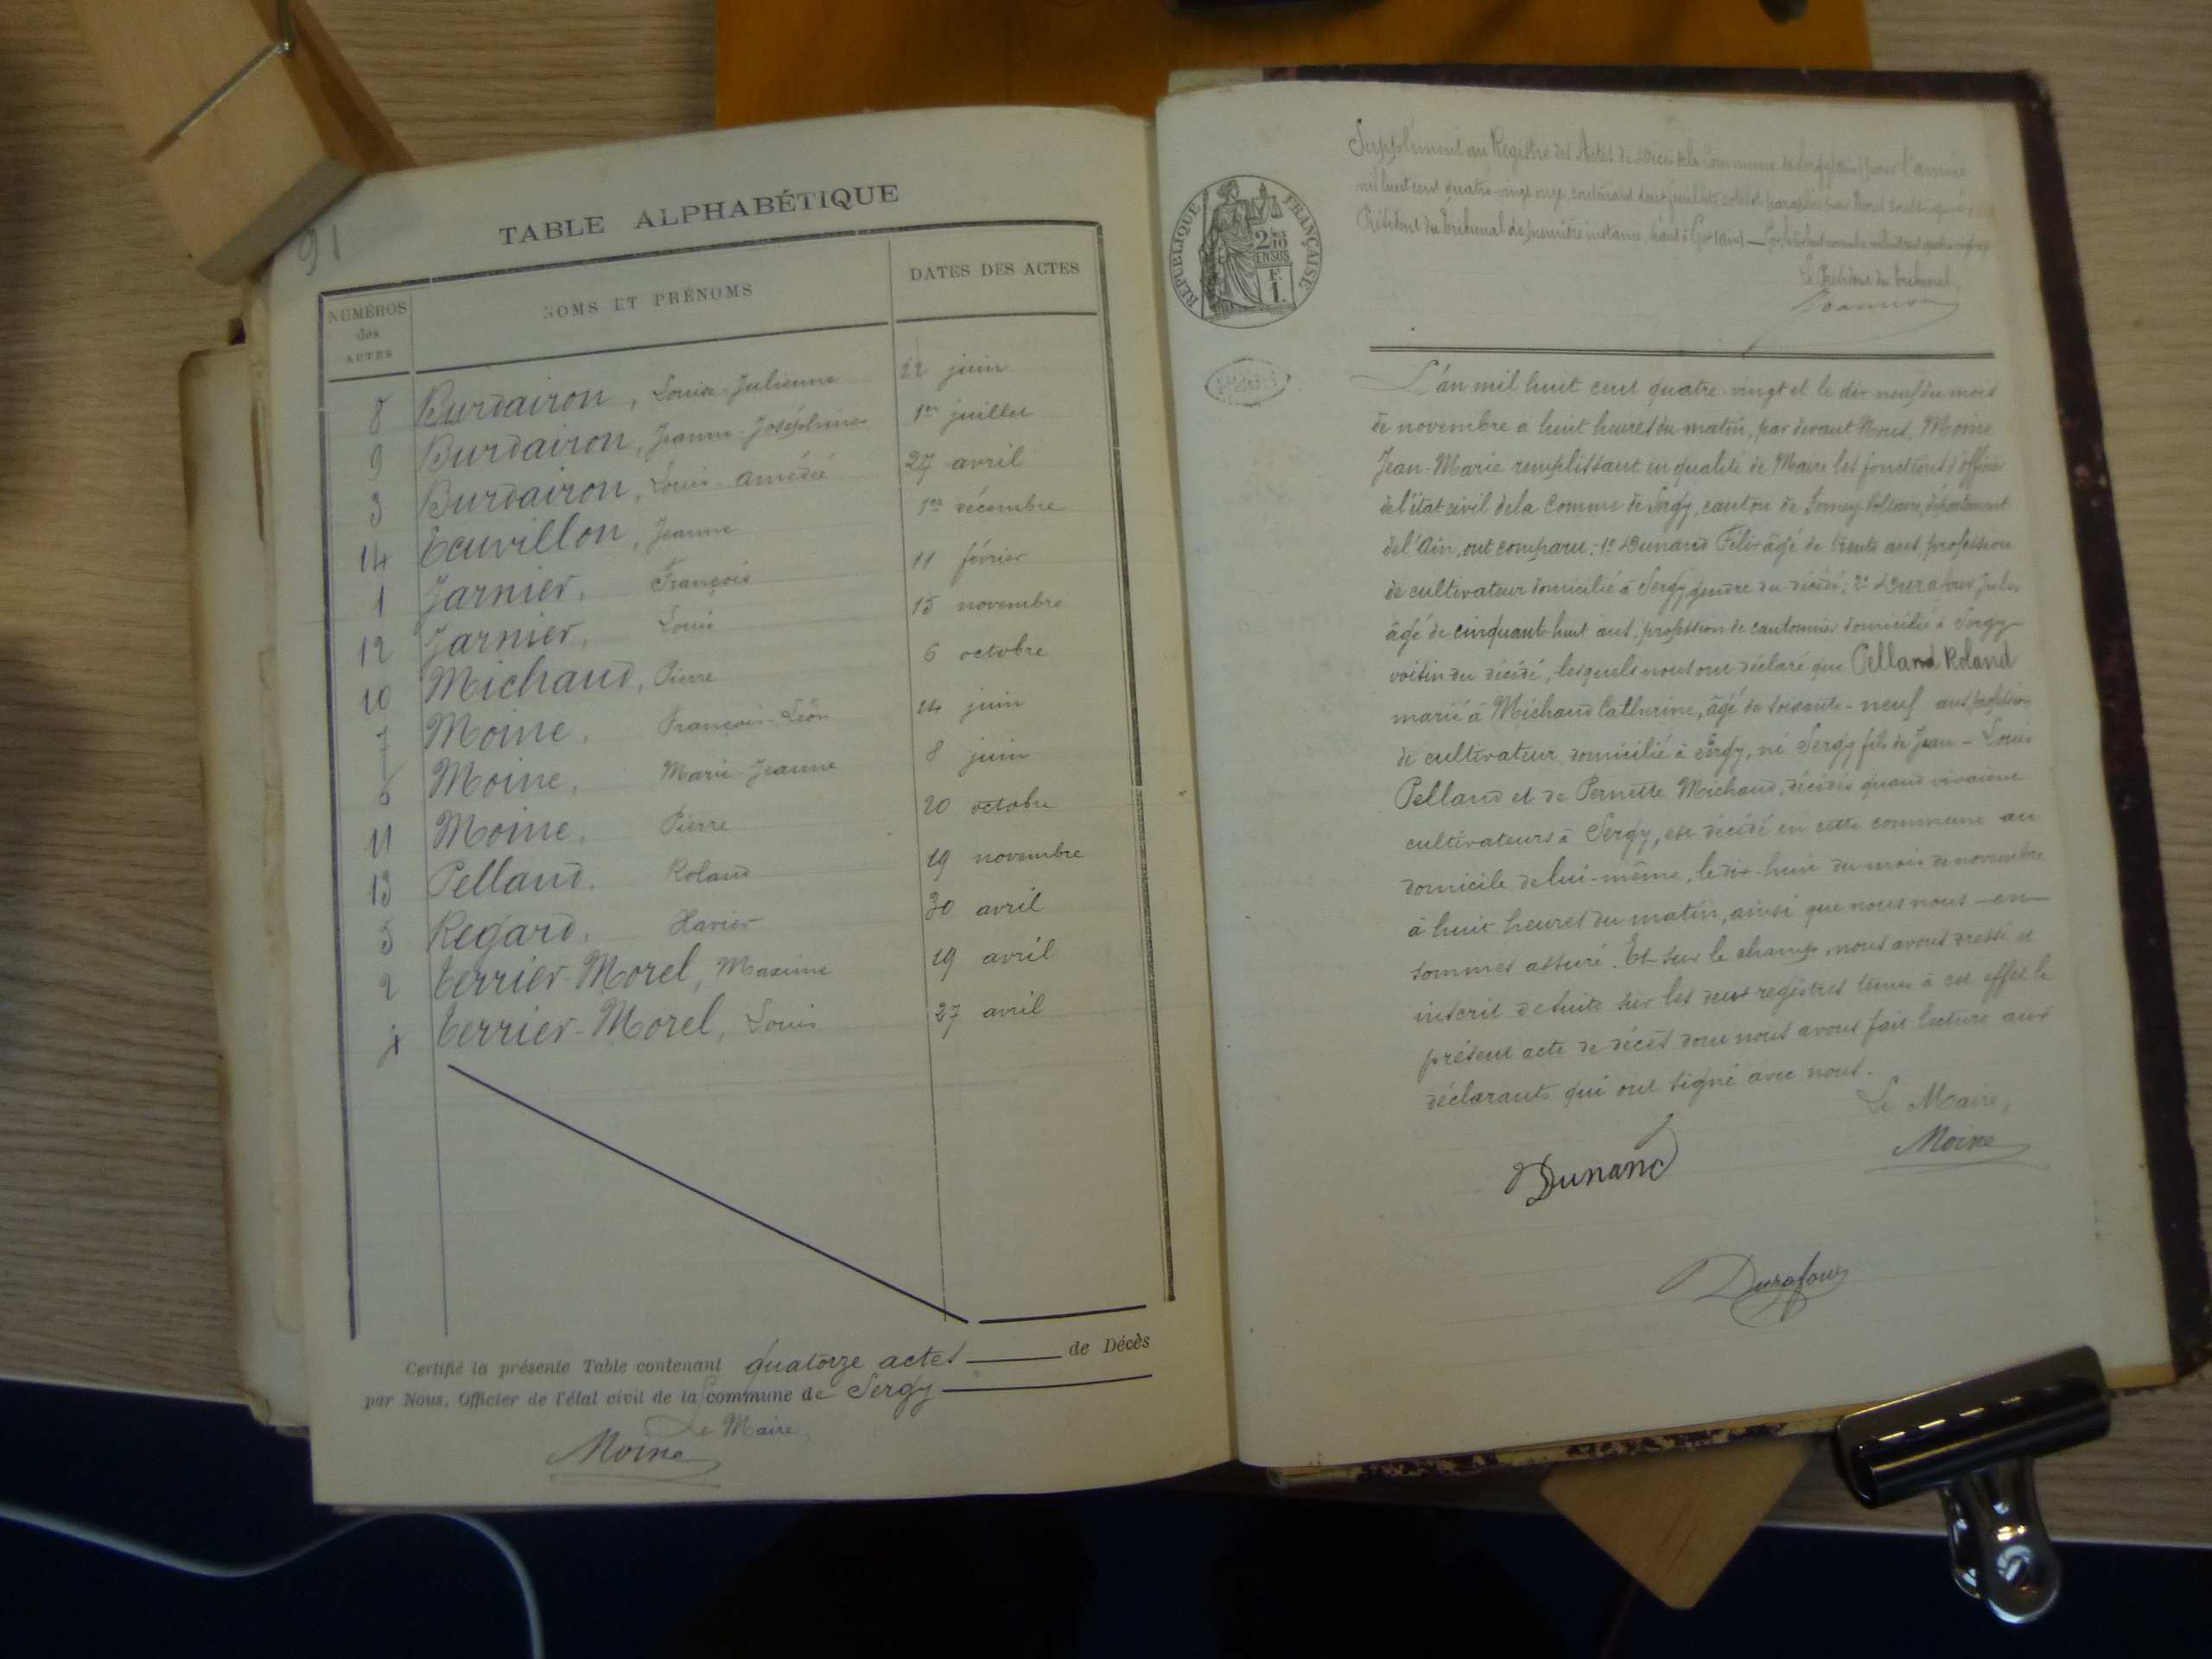 91
TABLE ALPHABÉTIQUE
NUMÉROS des ACTES NOMS ET PRÉNOMS DATES DES ACTES
8 Burdairon, Louise-Julienne 22 juin
9 Burdairon, Jeanne-Joséphine 1er juillet
3 Burdairon, Louis-Amédée 27 avril
14 Ecuvillon, Jeanne 1er décembre
1 Jarnier, François 11 février
12 Jarnier, Louis 15 novembre
10 Michaud, Pierre 6 octobre
7 Moine, François-Léon 14 juin
6 Moine, Marie-Jeanne 8 juin
11 Moine, Pierre 20 octobre
13 Pelland, Roland 19 novembre
5 Regard, Xavier 30 avril
2 Terrier-Morel, Maxime 19 avril
4 Terrier-Morel, Louis 27 avril
Certifié la présente Table contenant quatorze actes de Décès
par Nous, Officier de l'état civil de la commune de Sergy
Le Maire,
Moine
Supplément au Registre des Actes de décès de la Commune de Sergy (Ain) pour l'année
mil huit cent quatre-vingt onze, contenant deux feuillets cotés et paraphés par Nous
Président du Tribunal de première instance, séant à Gex (Ain)
Le Président du tribunal,
RÉPUBLIQUE FRANÇAISE
2/10 EN SUS
1 F.
L'an mil huit cent quatre-vingt et le dix-neuf du mois
de novembre à huit heures du matin, par devant Nous, Moine
Jean-Marie remplissant en qualité de Maire les fonctions d'officier
de l'état civil de la Comme de Sergy, canton de Ferney-Voltaire, département
de l'Ain, ont comparu: 1° Dunand Félix âgé de trente ans, profession
de cultivateur domicilié à Sergy gendre du décédé; 2° Durafour Jules
âgé de cinquante-huit ans, profession de cantonnier domicilié à Sergy
voisin du décédé, lesquels nous ont déclaré que Pelland Roland
marié à Michaud Catherine, âgé de soixante-neuf ans profession
de cultivateur domicilié à Sergy, né Sergy fils de Jean-Louis
Pelland et de Pernette Michaud, décédés quand vivaient
cultivateurs à Sergy, est décédé en cette commune au
domicile de lui-même, le dix-huit du mois de novembre
à huit heures du matin, ainsi que nous nous en
sommes assuré. Et sur le champ, nous avons dressé et
inscrit de suite sur les deux registres tenus à cet effet le
présent acte de décès dont nous avons fait lecture aux
déclarants qui ont signé avec nous.
Le Maire,
Moine
Dunand
Durafour